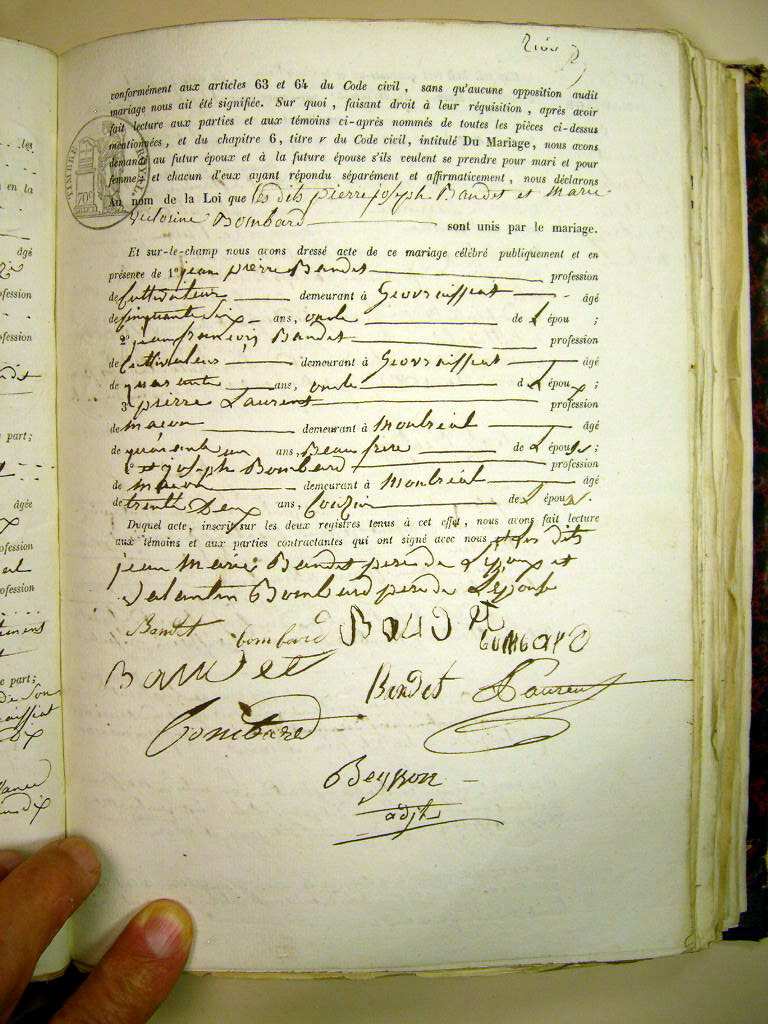 conformément aux articles 63 et 64 du Code civil, sans qu'aucune opposition audit
mariage nous ait été signifiée. Sur quoi, faisant droit à leur réquisition, après avoir
fait lecture aux parties et aux témoins ci-après nommés de toutes les pièces ci-dessus
mentionnées, et du chapitre 6, titre v du Code civil, intitulé Du Mariage, nous avons
demandé au futur époux et à la future épouse s'ils veulent se prendre pour mari et pour
femme, et chacun d'eux ayant répondu séparément et affirmativement, nous déclarons
Au nom de la Loi que les dits pierre joseph Baudet et marie
victorine Bombard sont unis par le mariage.
Et sur-le-champ nous avons dressé acte de ce mariage célébré publiquement et en
présence de 1° jean pierre Baudet profession
de Cultivateur demeurant à Geovreissiat âgé
de Cinquante six ans, oncle de L épou ;
2° jean françois Baudet profession
de Cultivateur demeurant à Geovreissiat âgé
de quarante ans, oncle d L époux ;
3° pierre Laurent profession
de maçon demeurant à Montréal âgé
de quarante un ans, Beau frere de L épouse ;
joseph Bombard profession
de maçon demeurant à Montréal âgé
de trente Deux ans, Couzin de L épouse.
Duquel acte, inscrit sur les deux registres tenus à cet effet, nous avons fait lecture
aux témoins et aux parties contractantes qui ont signé avec nous et les dits
jean Marie Baudet pere de L'Epoux et
Valentin Bombard pere de L'Epouse
Baudet bombard Baudet bombard
Baudet Baudet Laurent
Bombard
Beyson
adjt
TIMBRE ROYAL
70
les
en la
âgé
profession
part;
âgée
profession
profession
part;